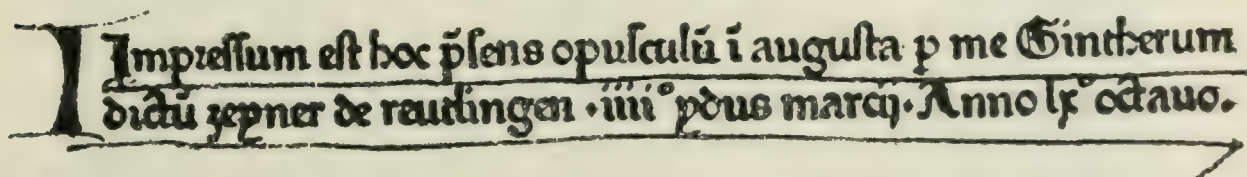 Impressum est hoc p̄sens opusculū ī augusta p me Gintherum
dictū zeyner de reutlingen .iiii° ydus marcij. Anno lx° octauo.